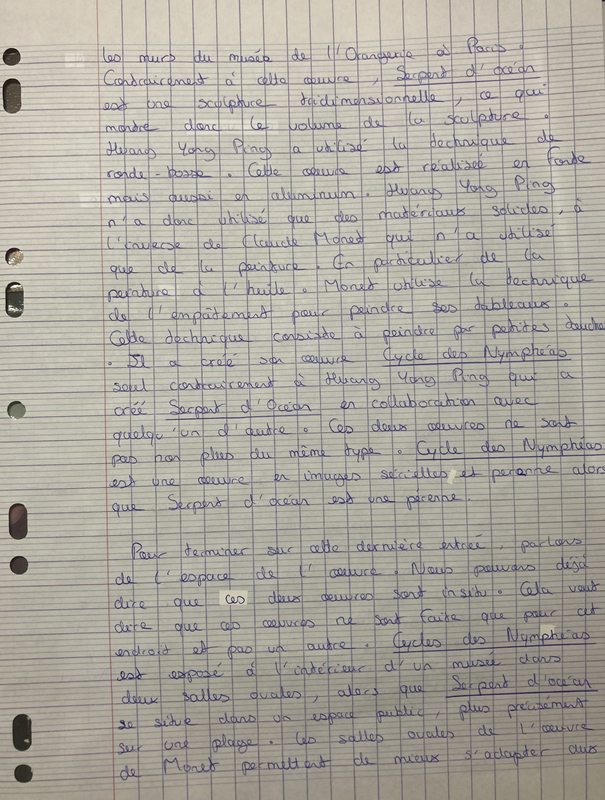 les murs du musée de l'Orangerie à Paris.
Contrairement à cette œuvre, Serpent d'océan
est une sculpture tridimensionnelle, ce qui
montre donc le volume de la sculpture.
Huang Yong Ping a utilisé la technique de
ronde-bosse. Cette œuvre est réalisée en fonte
mais aussi en aluminum. Huang Yong Ping
n'a donc utilisé que des matériaux solides, à
l'inverse de Claude Monet qui n'a utilisé
que de la peinture. En particulier de la
peinture à l'huile. Monet utilise la technique
de l'empâtement pour peindre ses tableaux.
Cette technique consiste à peindre par petites touches
. Il a créé son œuvre Cycle des Nymphéas
seul contrairement à Huang Yong Ping qui a
créé Serpent d'Océan en collaboration avec
quelqu'un d'autre. Ces deux œuvres ne sont
pas non plus du même type. Cycle des Nymphéas
est une œuvre en images sérielles et perenne alors
que Serpent d'océan est une pérenne.
Pour terminer sur cette dernière entrée, parlons
de l'espace de l'œuvre. Nous pouvons déjà
dire que ces deux œuvres sont insitu. Cela veut
dire que ces œuvres ne sont faite que pour cet
endroit et pas un autre. Cycles des Nymphéas
est exposé à l'intérieur d'un musée dans
deux salles ovales, alors que Serpent d'océan
se situe dans un espace public, plus precisément
sur une plage. Les salles ovales de l'œuvre
de Monet permettent de mieux s'adapter aux